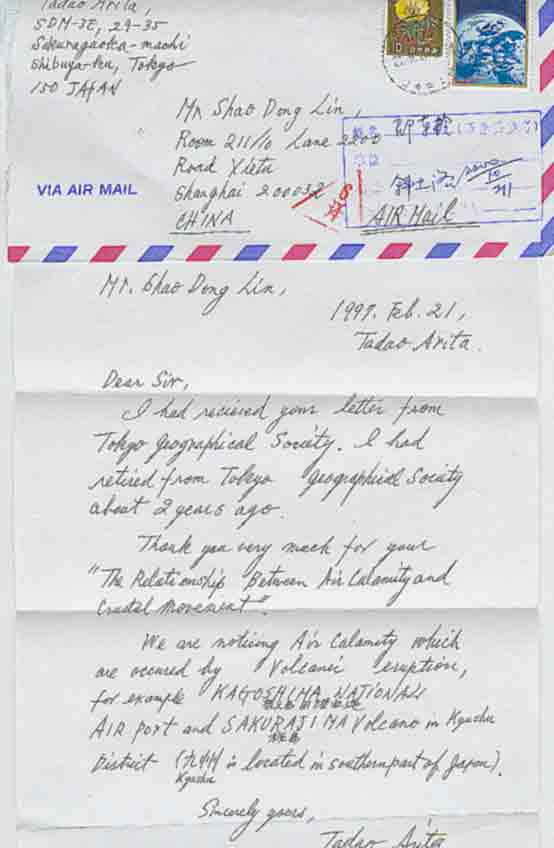 Tadao Arita,
SDM-3E, 29-35
Sakuragaoka-machi
Shibuya-ku, Tokyo
150 JAPAN
Mr. Shao Dong Lin,
Room 211/10 Lane 2200
Road Xietu
Shanghai 200032
CHINA
VIA AIR MAIL
AIR Mail
Mr. Shao Dong Lin,
1997. Feb. 21,
Tadao Arita.
Dear Sir,
I had recieved your letter from
Tokyo Geographical Society. I had
retired from Tokyo Geographical Society
about 2 years ago.
Thank you very much for your
"The Relationship Between Air Calamity and
Crustal Movement".
We are noticing Air Calamity which
are occured by Volcanic eruption,
for example KAGOSHIMA NATIONAL
AIR port and SAKURAJIMA Volcano in Kyushu
District (九州 is located in southern part of Japan).
Kyushu
Sincerely yours,
Tadao Arita